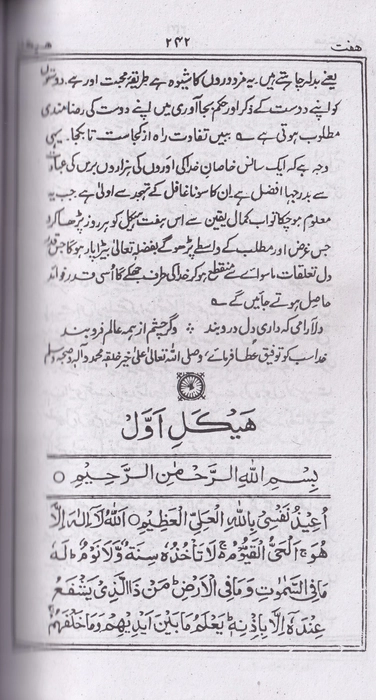 ہفت ۲۴۲
یعنے بدلہ چاہتے ہیں۔ یہ مزدوروں کا شیوہ ہے طریقۂ محبت اور ہے۔ دوستوں
کو اپنے دوست کے ذکر اور حکم بجا آوری میں اپنے دوست کی رضامندی
مطلوب ہوتی ہے ؎ ببیں تفاوت راہ از کجاست تا بکجا۔ یہی
وجہ ہے کہ ایک سانس خاصانِ خدا کی اوروں کی ہزاروں برس کی عبادت
سے بدرجہا افضل ہے ان کا سونا غافل کے تہجد سے اولیٰ ہے جب یہ
معلوم ہو چکا تو اب کمال یقین سے اس ہفت ہیکل کو ہر روز پڑھا کرو
جس غرض اور مطلب کے واسطے پڑھو گے بفضلہٖ تعالیٰ بیڑا پار ہوگا جس قدر
دل تعلقات ماسوا سے منقطع ہو کر خدا کی طرف جھکے گا اُسی قدر فوائد
حاصل ہوتے جائیں گے ؎
دلارامی کہ داری دل درو بند ؞ وگر چشم از ہمہ عالم فرو بند
خدا سب کو توفیق عطا فرمائے وصلی اللہ تعالیٰ علیٰ خیر خلقہٖ محمد و آلہٖ وصحبہٖ وسلم
هَيْكَلِ اَوَّلْ
بِسْمِ اللهِ الرَّحْمٰنِ الرَّحِيْمِ ○
اُعِيْذُ نَفْسِيْ بِاللهِ الْعَلِيِّ الْعَظِيْمِ ○ اَللهُ لَآ اِلٰهَ اِلَّا
هُوَ ۚ اَلْحَيُّ الْقَيُّوْمُ ۚ لَا تَأْخُذُهٗ سِنَةٌ وَّلَا نَوْمٌ ؕ لَهٗ
مَا فِي السَّمٰوٰتِ وَمَا فِي الْاَرْضِ ؕ مَنْ ذَا الَّذِيْ يَشْفَعُ
عِنْدَهٗٓ اِلَّا بِاِذْنِهٖ ؕ يَعْلَمُ مَا بَيْنَ اَيْدِيْهِمْ وَمَا خَلْفَهُمْ ۚ